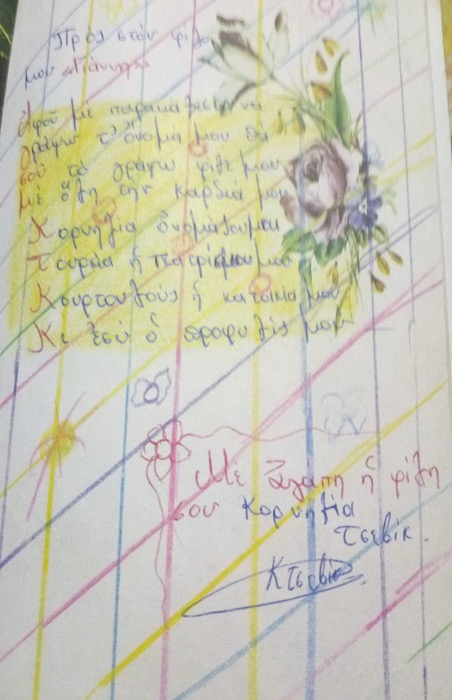 Πρός στόν φίλο
μου «Γιάννη»
Ἀφοῦ μέ παρακαλεῖς νά
γράψω τ' ὄνομά μου θά
σού τό γράψω φίλε μου
μέ ὅλη τήν καρδιά μου
Κορνηλία ὀνομάζομαι
Τουρκία ἡ πατρίδα μου
Κουρτουλούς ἡ κατοικία μου
Κι ἐσύ ὁ φίλος μου
Μέ ἀγάπη ἡ φίλη
σου Κορνηλία
Τσεβίκ.
ΚΤσεβίκ